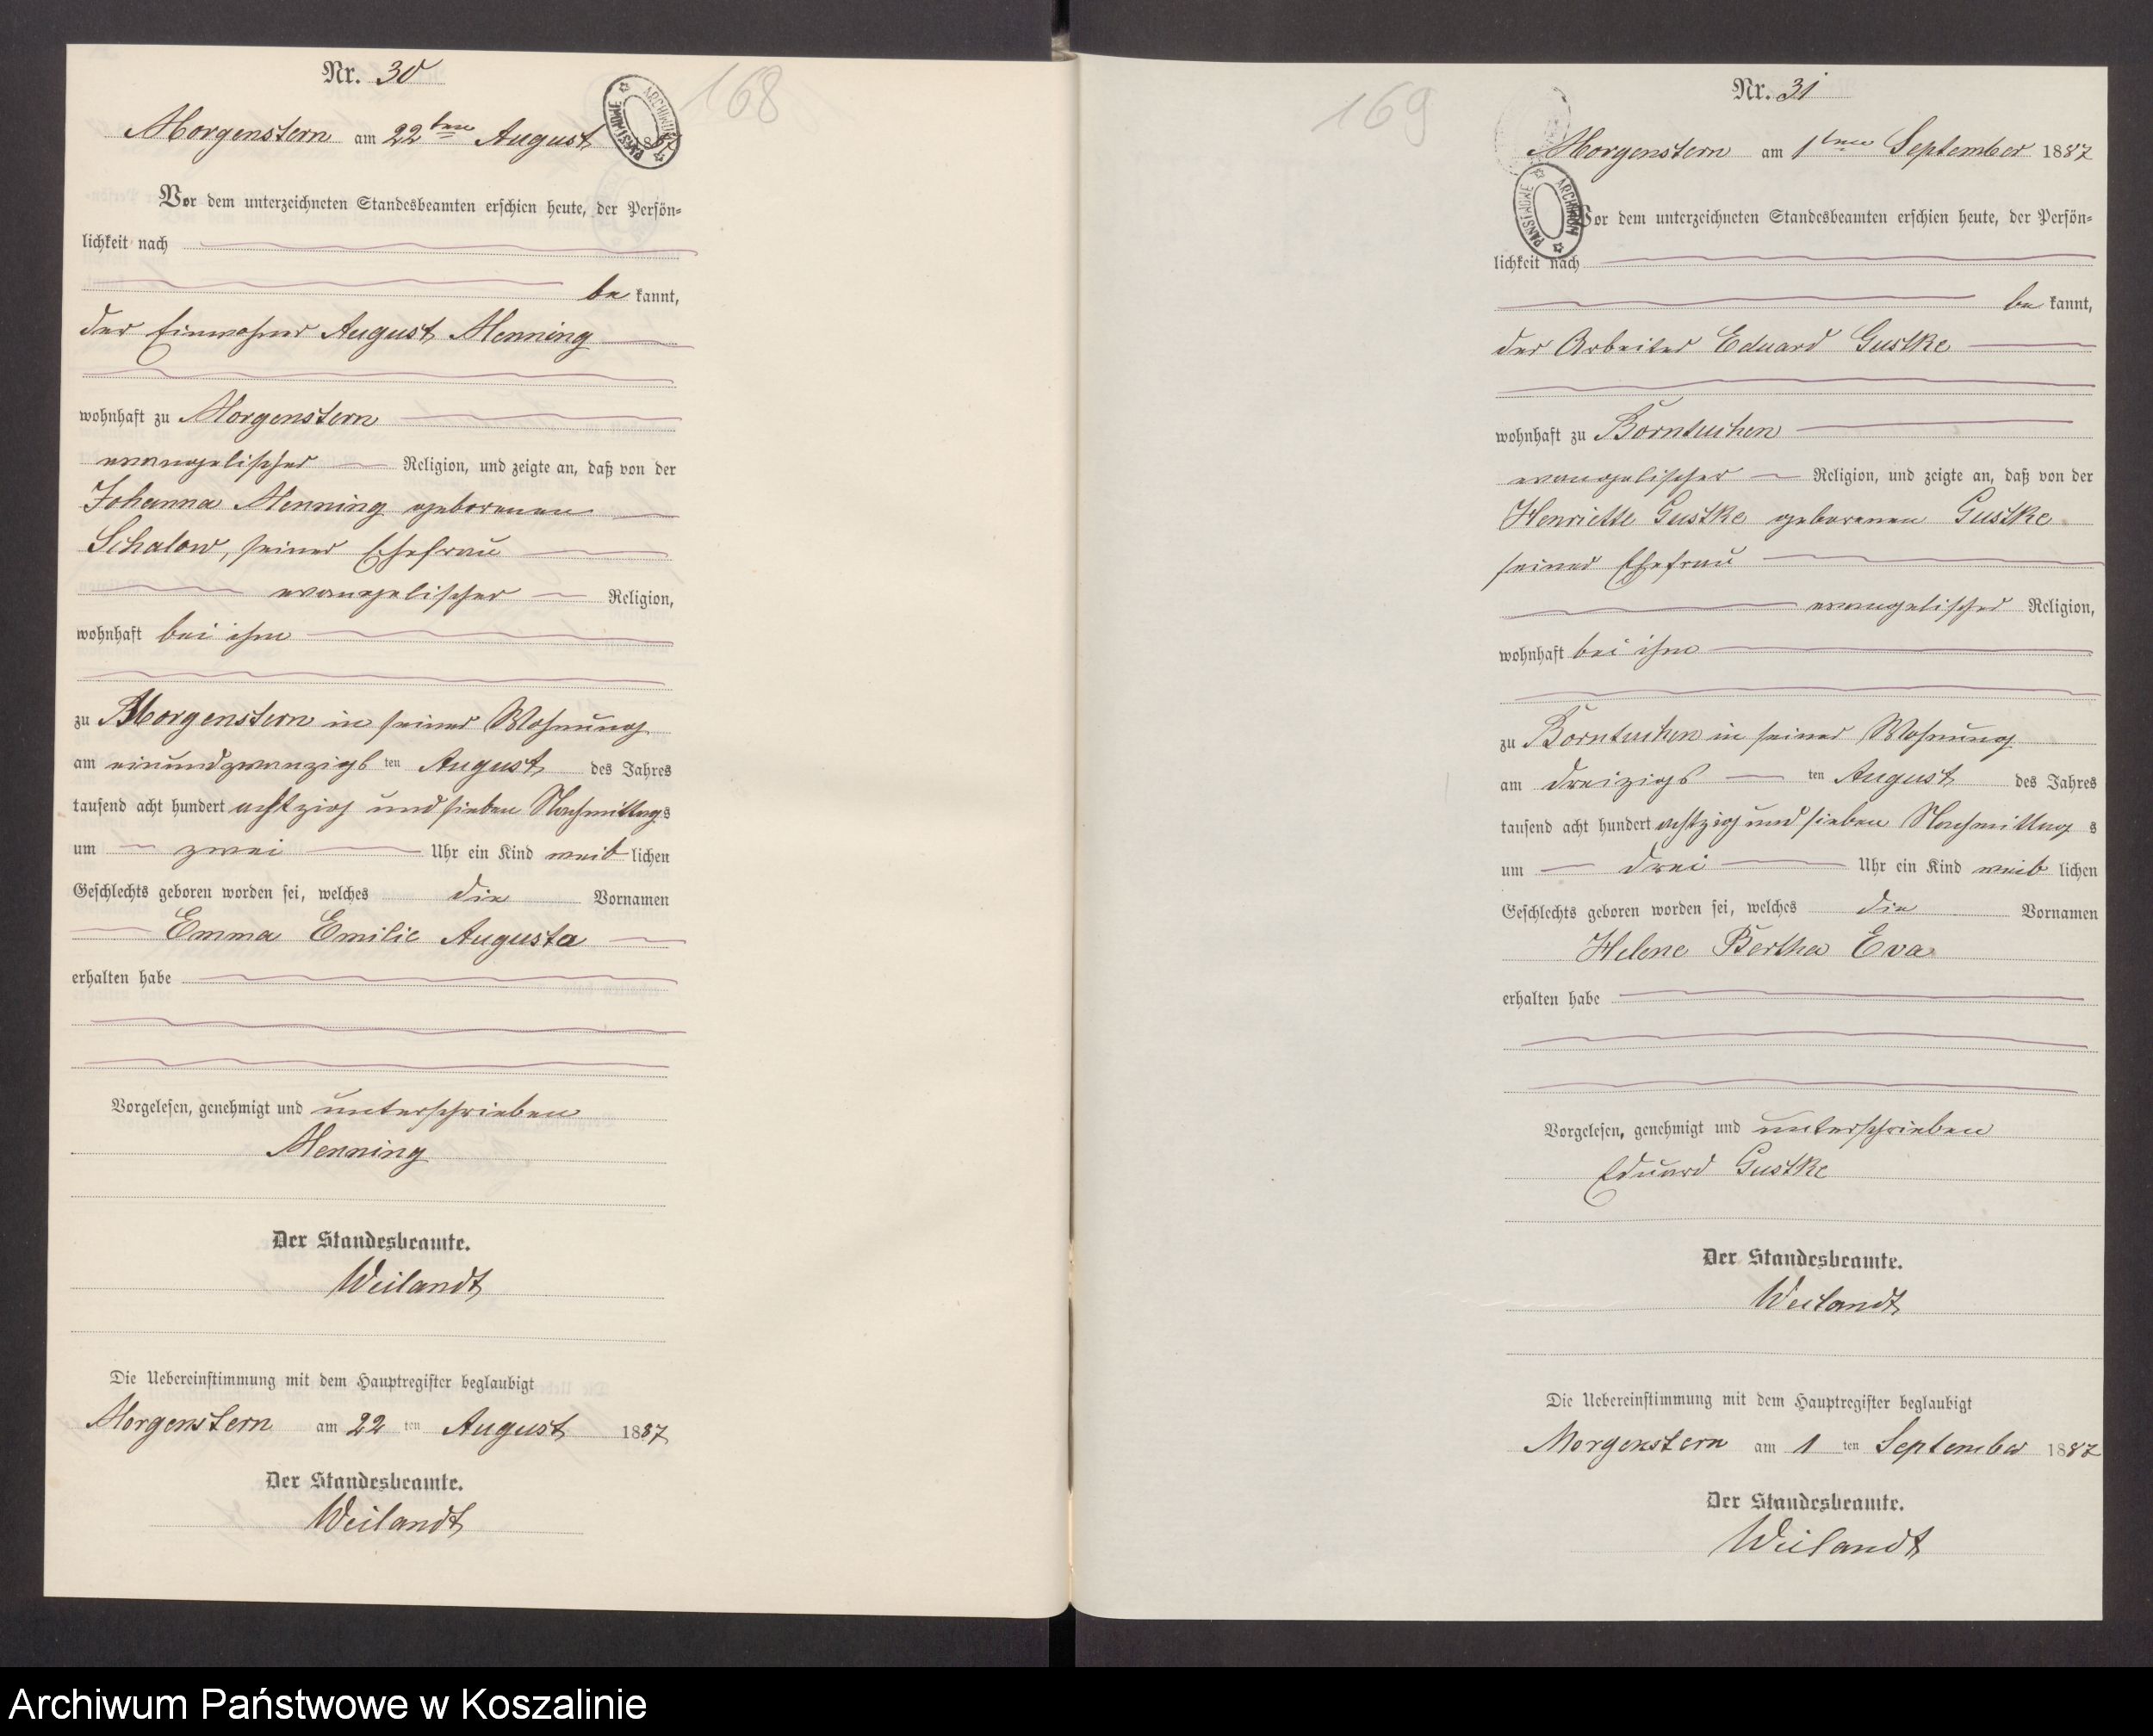 Nr. 30
168
Morgenstern am 22ten August 1887
PAŃSTWOWE ARCHIWUM
Vor dem unterzeichneten Standesbeamten erschien heute, der Persön=
lichkeit nach
be kannt,
der Einwohner August Menning
wohnhaft zu Morgenstern
evangelischer Religion, und zeigte an, daß von der
Johanna Menning geborenen
Schalow, seiner Ehefrau
evangelischer Religion,
wohnhaft bei ihm
zu Morgenstern in seiner Wohnung
am einundzwanzigs ten August des Jahres
tausend acht hundert achtzig und sieben Nachmittags
um zwei Uhr ein Kind weib lichen
Geschlechts geboren worden sei, welches die Vornamen
Emma Emilie Augusta
erhalten habe
Vorgelesen, genehmigt und unterschrieben
Menning
Der Standesbeamte.
Weilandt
Die Uebereinstimmung mit dem Hauptregister beglaubigt
Morgenstern am 22 ten August 1887
Der Standesbeamte.
Weilandt
Nr. 31
169
Morgenstern am 1ten September 1887
PAŃSTWOWE ARCHIWUM
Vor dem unterzeichneten Standesbeamten erschien heute, der Persön=
lichkeit nach
be kannt,
der Arbeiter Eduard Gustke
wohnhaft zu Borntuchen
evangelischer Religion, und zeigte an, daß von der
Henriette Gustke geborenen Gustke
seiner Ehefrau
evangelischer Religion,
wohnhaft bei ihm
zu Borntuchen in seiner Wohnung
am dreizigs ten August des Jahres
tausend acht hundert achtzig und sieben Nachmittag s
um drei Uhr ein Kind weib lichen
Geschlechts geboren worden sei, welches die Vornamen
Helene Bertha Eva
erhalten habe
Vorgelesen, genehmigt und unterschrieben
Eduard Gustke
Der Standesbeamte.
Weilandt
Die Uebereinstimmung mit dem Hauptregister beglaubigt
Morgenstern am 1 ten September 1887
Der Standesbeamte.
Weilandt
Archiwum Państwowe w Koszalinie